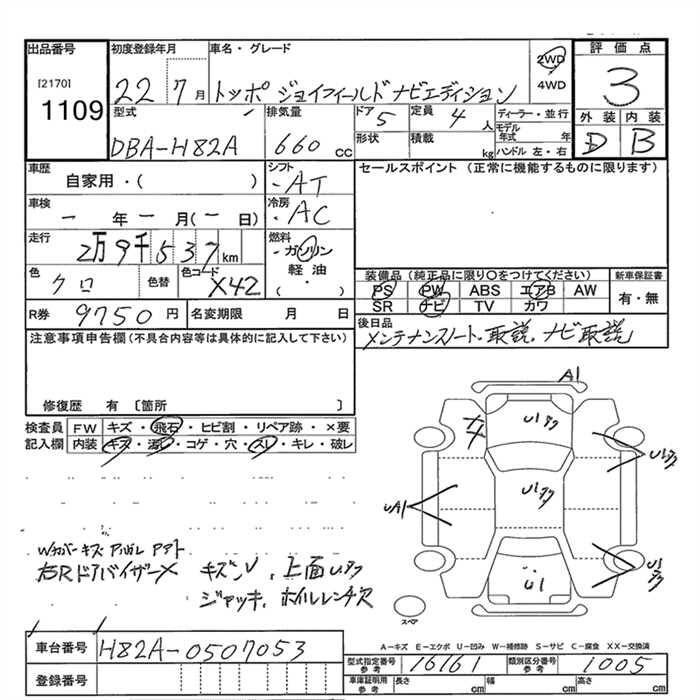 出品番号 初度登録年月 車名・グレード 評価点
[2170] 1109
22 7月 トッポ ジョイフィールド ナビエディション 2WD 4WD 3
型式 排気量 ドア 定員 ディーラー・並行 外装 内装
DBA-H82A 660cc 5 4人 モデル年式 年 D B
形状 積載 kg ハンドル 左・右
車歴 シフト セールスポイント (正常に機能するものに限ります)
自家用・( ) ・AT
車検 冷房
一 年 一 月(一 日) ・AC
走行 燃料
2万9千537km ・ガソリン
色 色替 色コード 軽油 装備品(純正品に限り〇をつけてください) 新車保証書
クロ X42 ・( ) PS PW ABS エアB AW 有・無
SR ナビ TV カワ
R券 9750円 名変期限 月 日 後日品
メンテナンスノート・取説、ナビ取説
注意事項申告欄(不具合内容等は具体的に記入して下さい)
修復歴 有 〔箇所 〕
検査員 FW キズ・飛石・ヒビ割・リペア跡・×要
記入欄 内装 キズ・汚レ・コゲ・穴・スレ・キレ・破レ
A1
U1アク
U1アク
UA1
U1アク
U1アク
U1
Wカバーキズ
右Rドアバイザー× キズ、上面U.アク
ジャッキ、ホイルレンチ欠
スペア
A-キズ E-エクボ U-凹み W-補修跡 S-サビ C-腐食 XX-交換済
車台番号 H82A-0507053
型式指定番号 参考 16161 類別区分番号 参考 1005
登録番号 車庫証明用 参考 長さ cm 幅 cm 高さ cm